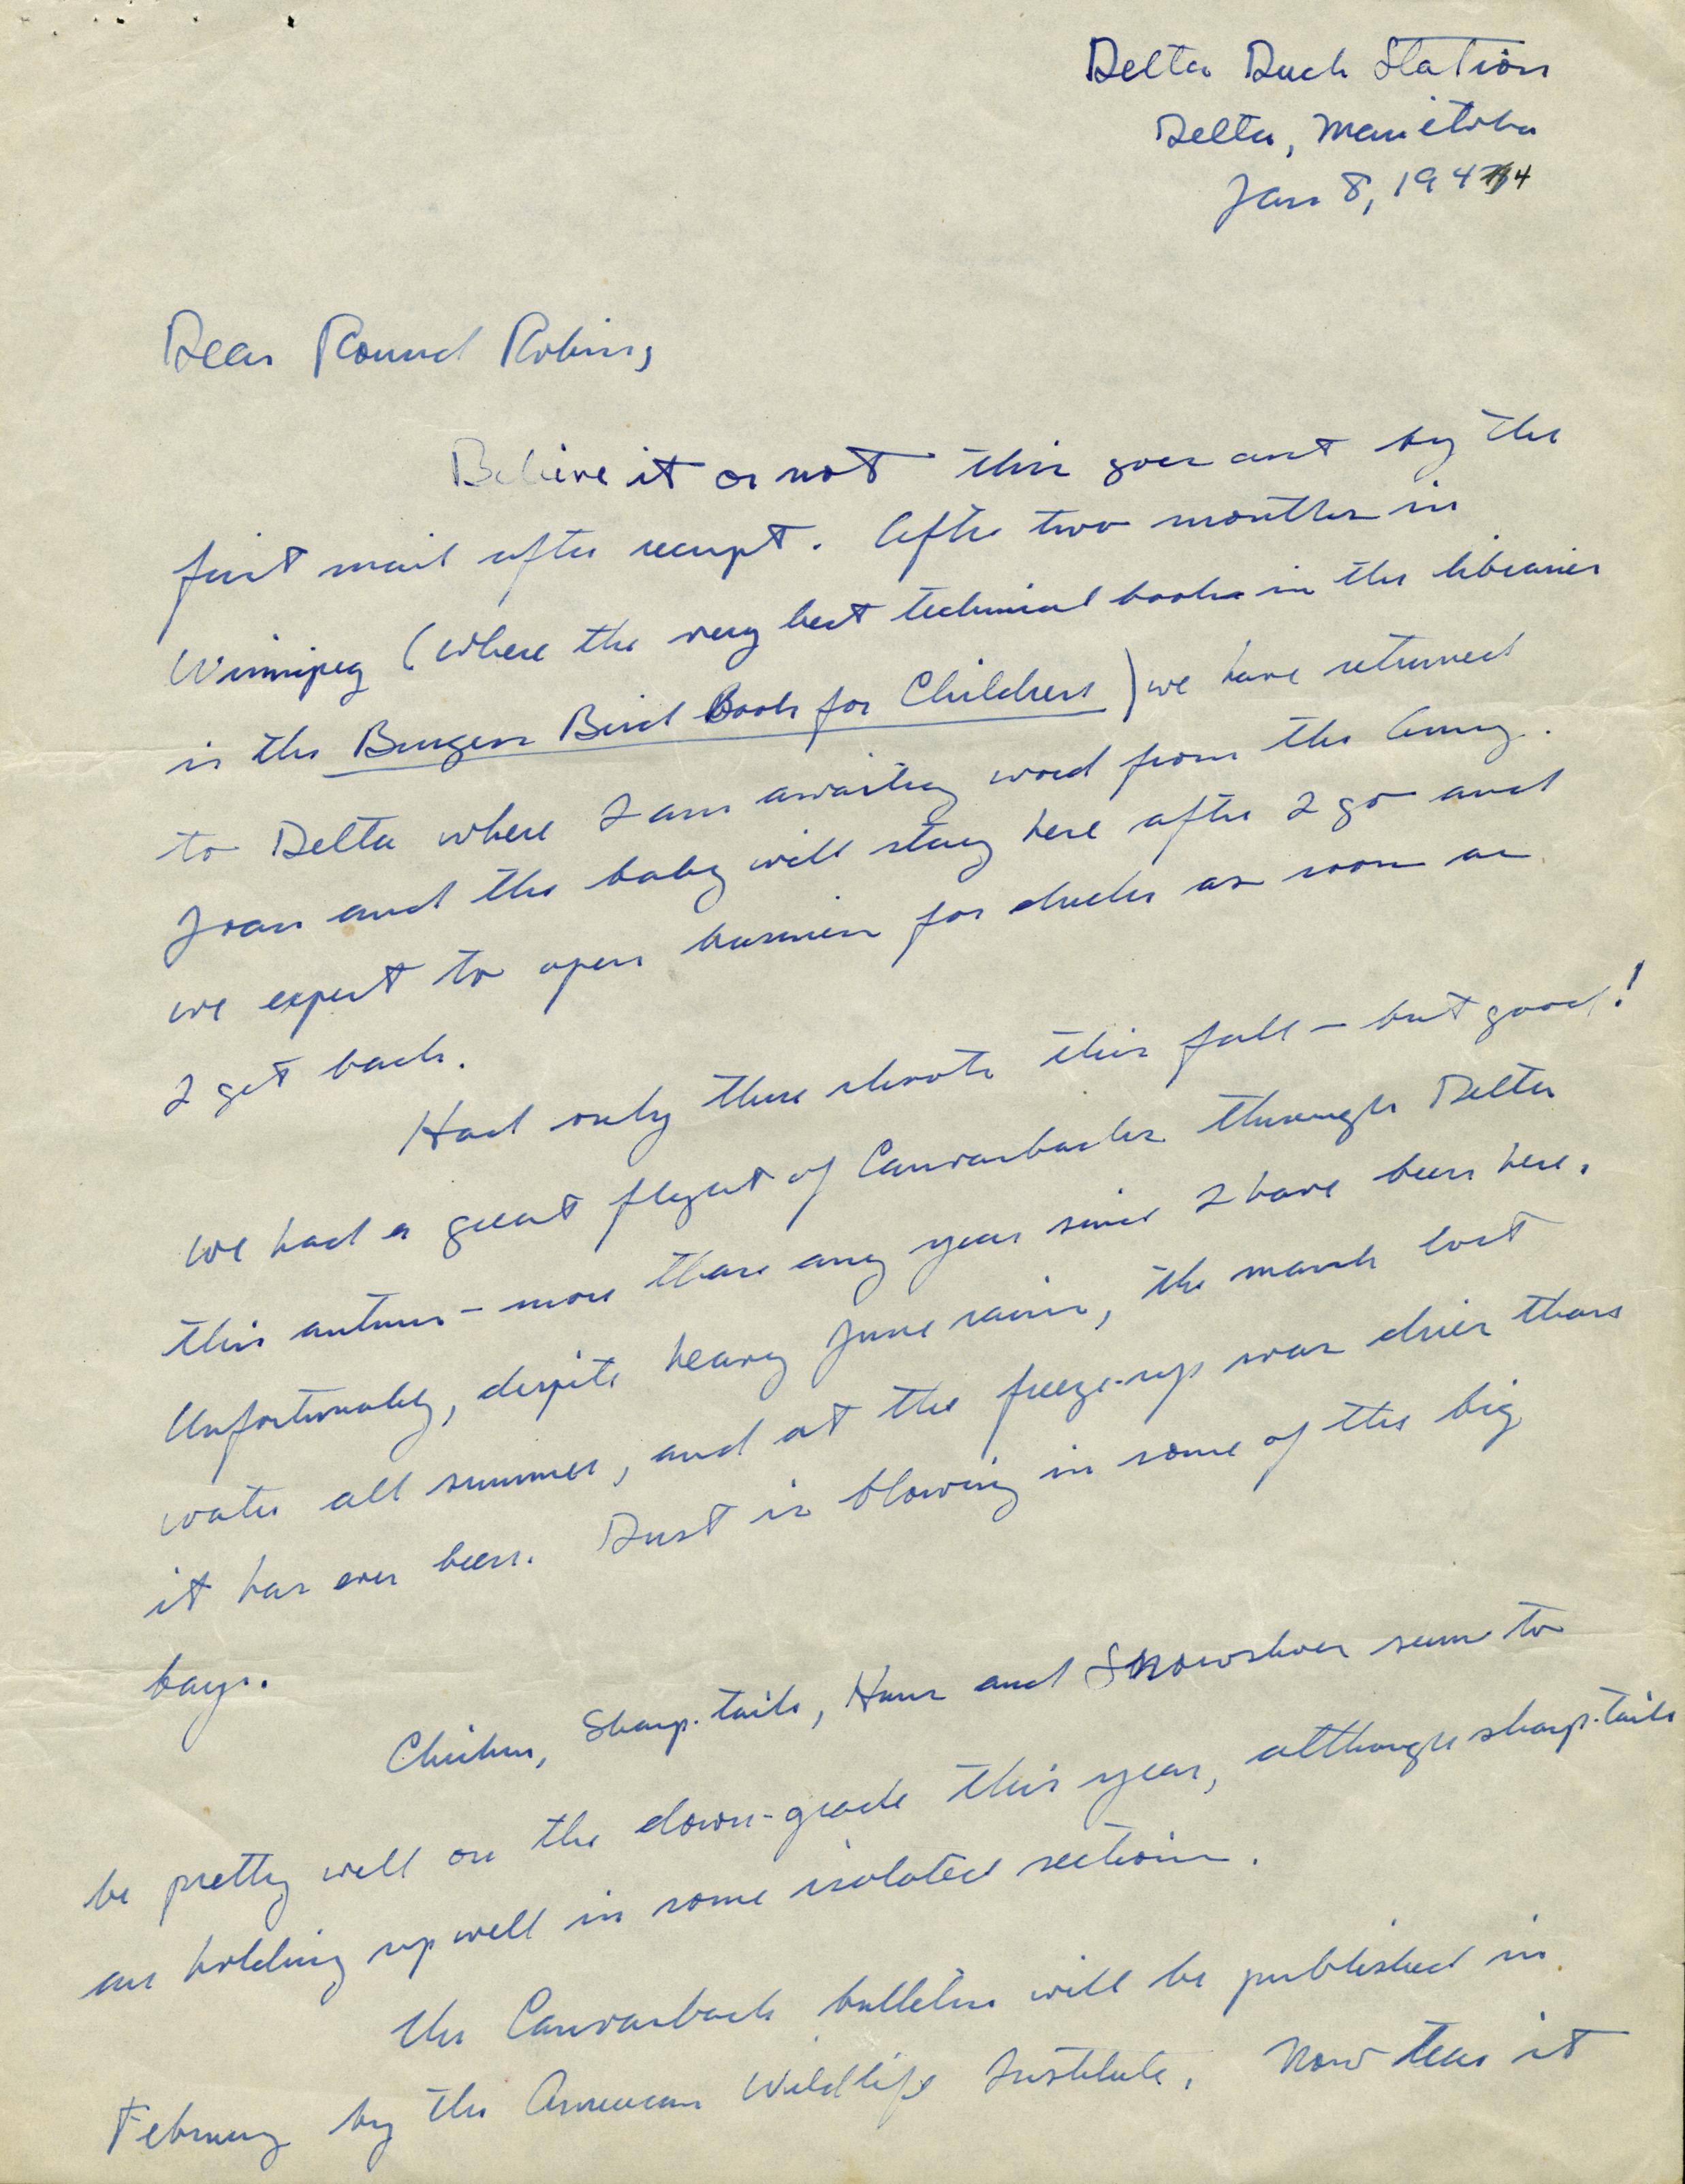 Delta Duck Station
Delta, Manitoba
Jan 8, 1944
Dear Round Robins,
Believe it or not this goes out by the
first mail after receipt. After two months in
Winnipeg (where the very best technical books in the libraries
is the Burgess Bird Book for Children) we have returned
to Delta where I am awaiting word from the Army.
Joan and the baby will stay here after I go and
we expect to open business for ducks as soon as
I get back.
Had only three shoots this fall – but good!
We had a great flight of Canvasbacks through Delta
this autumn – more than any year since I have been here.
Unfortunately, despite heavy June rains, the marsh lost
water all summer, and at the freeze-up was drier than
it has ever been. Dust is blowing in some of the big
bays.
Chicken, Sharp-tails, Huns and Snowshoes seem to
be pretty well on the down-grade this year, although sharp-tails
are holding up well in some isolated sections.
The Canvasback bulletin will be published in
February by the American Wildlife Institute. Now tear it